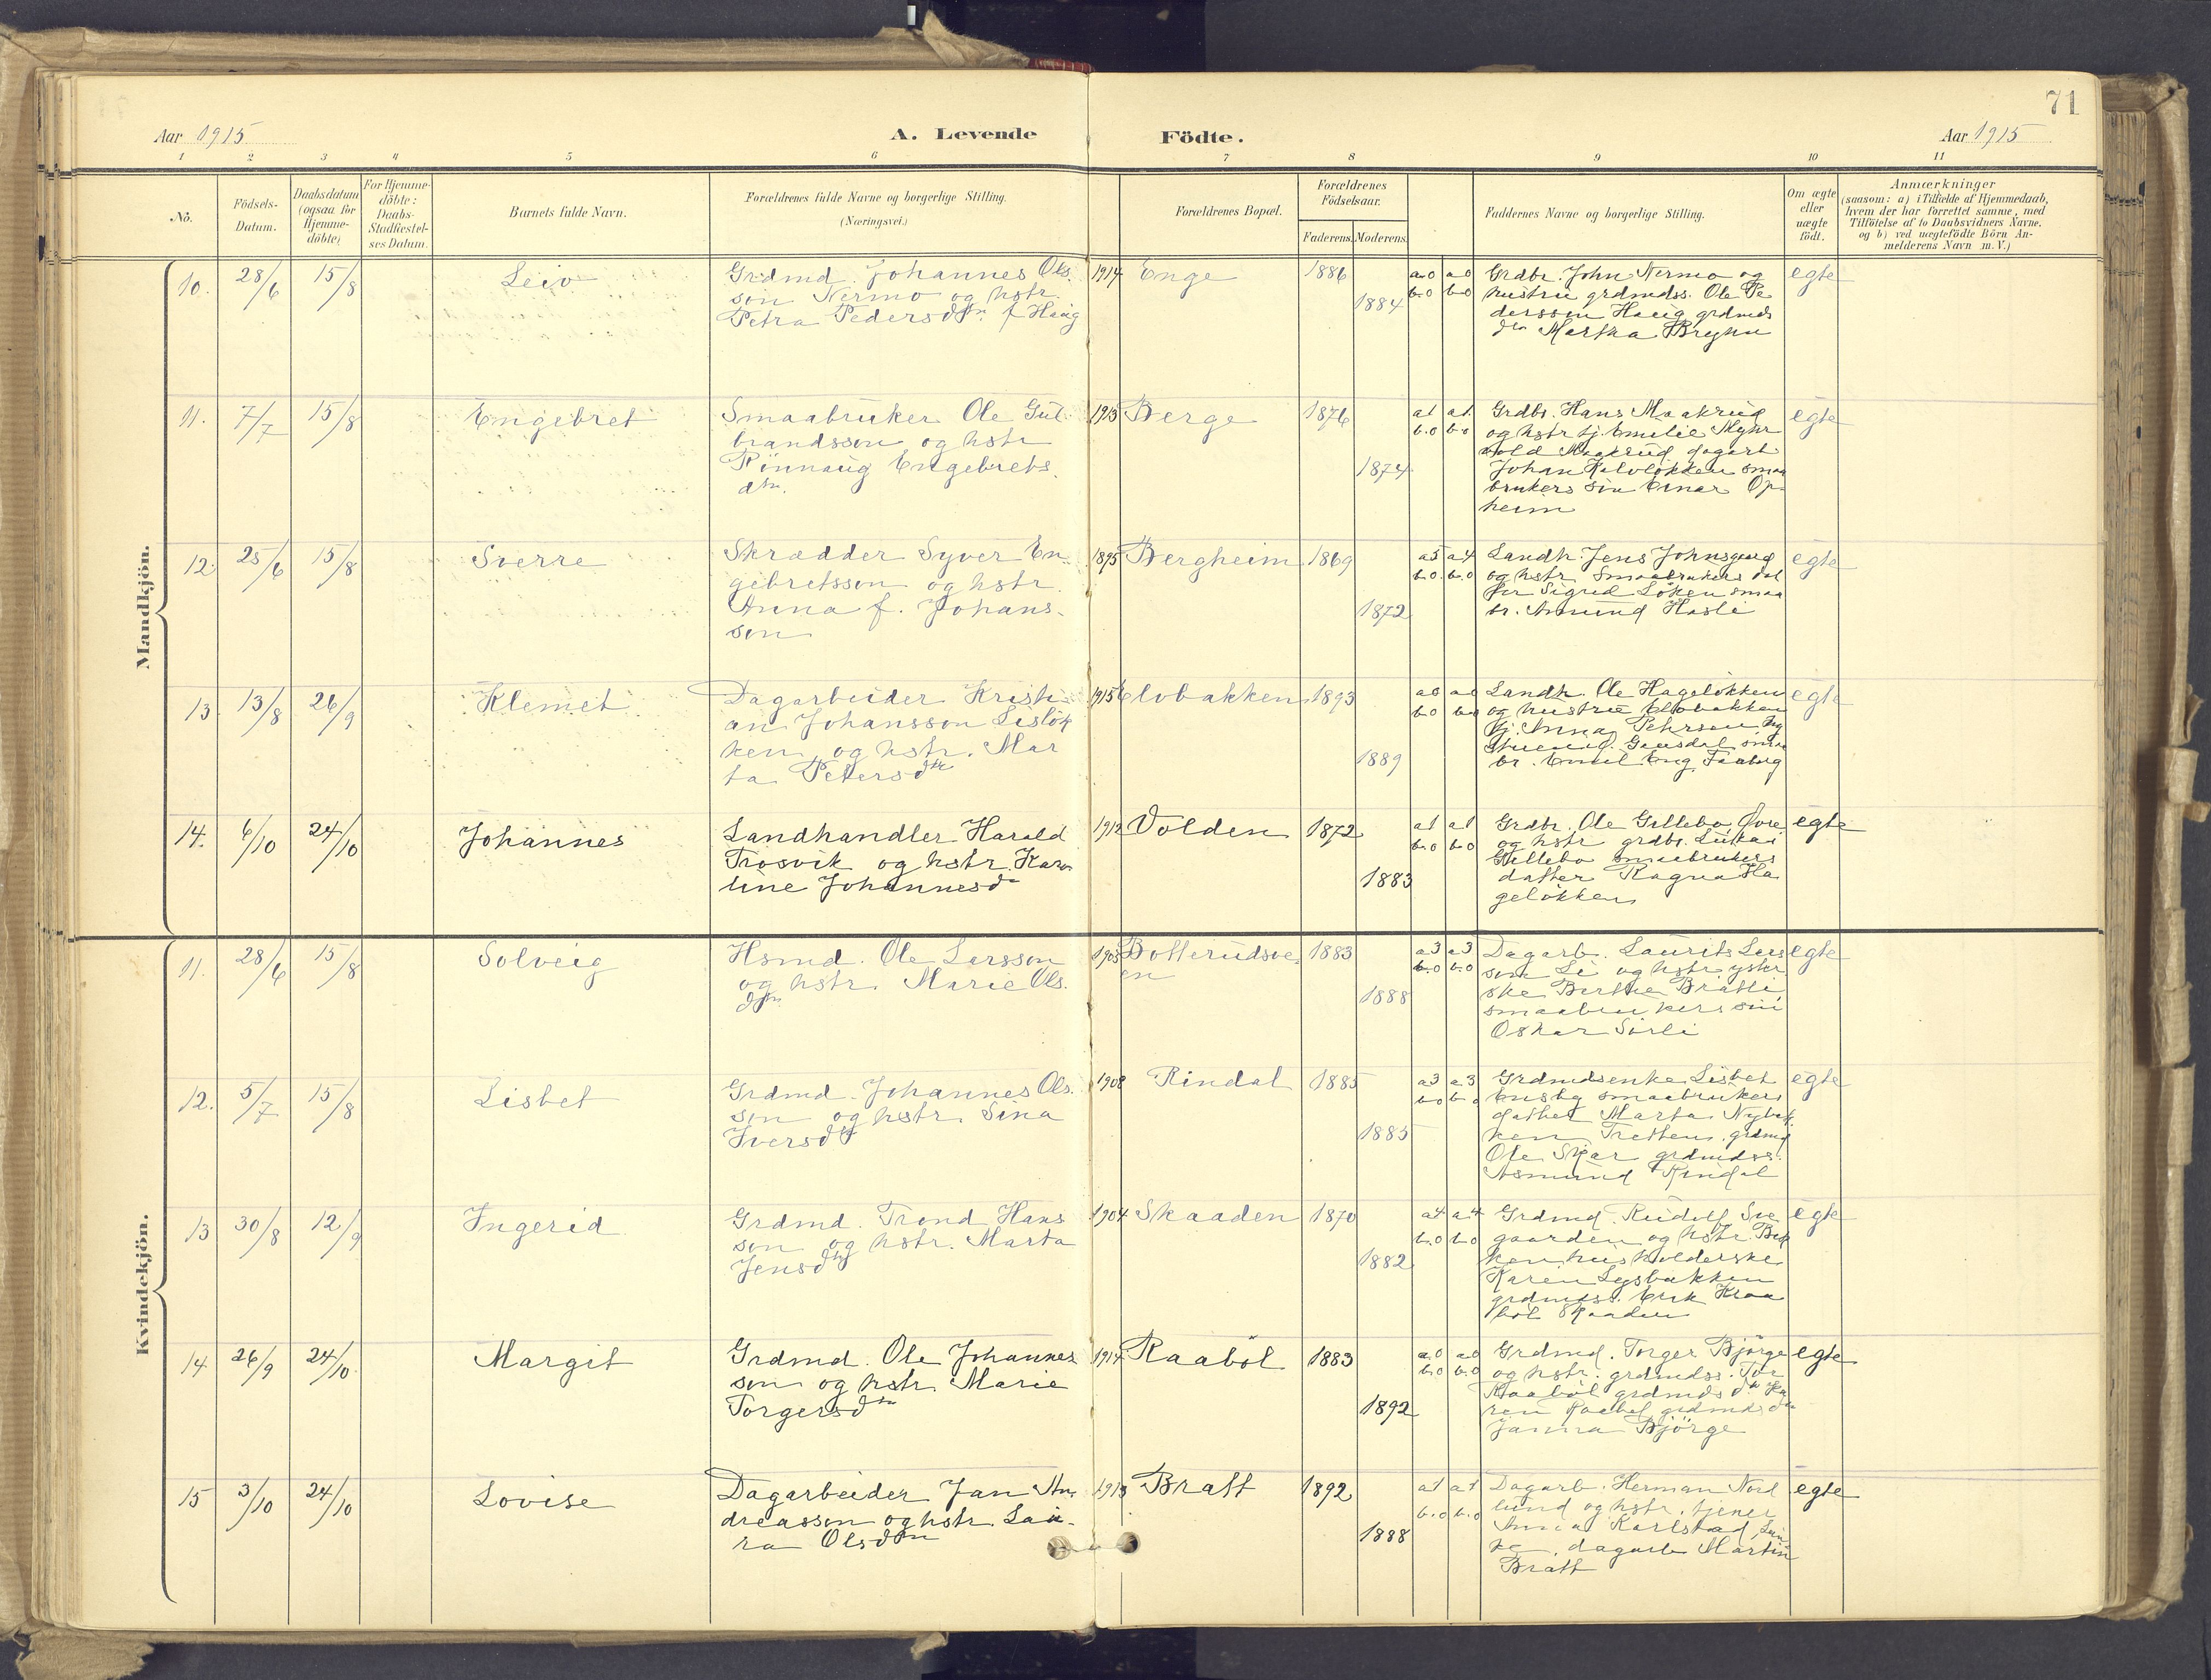 71
Aar 1915
A. Levende
Födte.
Aar 1915
1 2 3 4 5 6 7 8 9 10 11
No.
Födsels-
Datum.
Daabsdatum
(ogsaa for
Hjemme-
döbte)
For Hjemme-
döbte:
Daabs-
Stadfæstel-
ses Datum.
Barnets fulde Navn.
Forældrenes fulde Navne og borgerlige Stilling.
(Næringsvei.)
Forældrenes Bopæl.
Forældrenes
Födselsaar.
Faderens. Moderens.
Faddernes Navne og borgerlige Stilling.
Om ægte
eller
uægte
födt.
Anmærkninger
(saasom: a) i Tilfælde af Hjemmedaab,
hvem der har forrettet samme, med
Tilföielse af to Daabsvidners Navne.
og b) ved uægtefödte Börn An-
melderens Navn m. V.)
Mandkjön.
10. 28/6 15/8 Leiv
Grdmd. Johannes Ols.
son Nermo og hstr.
Petra Pedersdtr. f Haug
1914 Enge 1886
1884
a.0 a.0
b.0 b.0
Grdbr. John Nermo og
hustru grdmdss. Ole Pe
dersson Haug grdmds
dtr Martha Bryhn
egte
11. 7/7 15/8 Engebret
Smaabruker Ole Gul
brandsson og hstr
Rönnaug Engebrets.
dtr.
1913 Berge 1876
1874
a1 a1
b.0 b.0
Grdbr. Hans Maakrud
og hstr tj. Emelie Myhr
vold Maakrud dagarb
Johan Kalvlökken smaa
brukers sön Einar Op-
heim
egte
12. 25/6 15/8 Sverre
Skrædder Syver En
gebretsson og hstr.
Anna f. Johans-
sen
1895 Bergheim 1869
1872
a5 a4
b.0. b.0
Landh. Jens Johnsgaard
og hstr. Smaabrukers dat
ter Sigrid Löken smaa
br. Amund Hasli
egte
13. 13/8 26/9 Klemet
Dagarbeider Kristi-
an Johansson Lislök
ken og hstr. Mar
ta Petersdtr
1915 Elvbakken 1893
1889
a0 a0
b.0 b.0
Landh. Ole Hagelökken
og hustru Elvbakken
tj. Anna Pehrsen
Gausdal smaa
br. Emil Eng Faaberg
egte
14. 6/10 24/10 Johannes
Landhandler Harald
Trosvik og hstr. Karo
line Johannesdtr
1912 Volden 1872
1883
a1 a1
b.0 b.0
Grdbr. Ole Gillebo Övre
og hstr grdbr.
Gillebo smaabrukers
datter Ragna Ha
gelökken
egte
Kvindekjön.
11. 28/6 15/8 Solveig
Hsmd. Ole Larsson
og hstr. Marie Ols.
dtr.
1905 Botterudsve
en
1883
1888
a3 a3
b.0 b.0
Dagarb. Laurits Lars
son Li og hstr.
ske Berthe Bratli
smaabrukers sön
Oskar Sörli
egte
12. 5/7 15/8 Lisbet
Grdmd. Johannes Ols.
son og hstr. Sina
Iversdtr
1908 Rindal 1885
1885
a3 a3
b.0 b.0
Grdmdsenke Lisbet
Ensby smaabrukers
datter Marta Nybak
ken Tretten. grdmd
Ole Skar grdmdss.
Asmund Rindal
egte
13 30/8 12/9 Ingerid
Grdmd. Trond Hans
son og hstr. Marta
Jensdtr
1904 Skaaden 1870
1882
a4 a4
b.0 b.0
Grdmd. Rudolf Sve
gaarden og hstr. Bak
ken husholderske
Karen Lysbakken
grdmdss. Erik Kraa
böl Skaaden
egte
14 26/9 24/10. Margit
Grdmd. Ole Johannes
son og hstr. Marie
Torgersdtr
1914 Raaböl 1883
1892
a.0 a.0
b.0 b.0
Grdmd. Torger Björge
og hstr. grdmdss. Tor
Raaböl grdmds dtr Ka
ren Raaböl grdmds dtr
Janna Björge
egte
15 3/10 24/10 Lovise
Dagarbeider Jan An.
dreasson og hstr. Lau-
ra Olsdtr
1913 Bratt 1892
1888
a1 a1
b.0 b.0
Dagarb. Herman Nord
lund og hstr. tjener
Anna Karlstad,
dagarb Martin
Bratt
egte